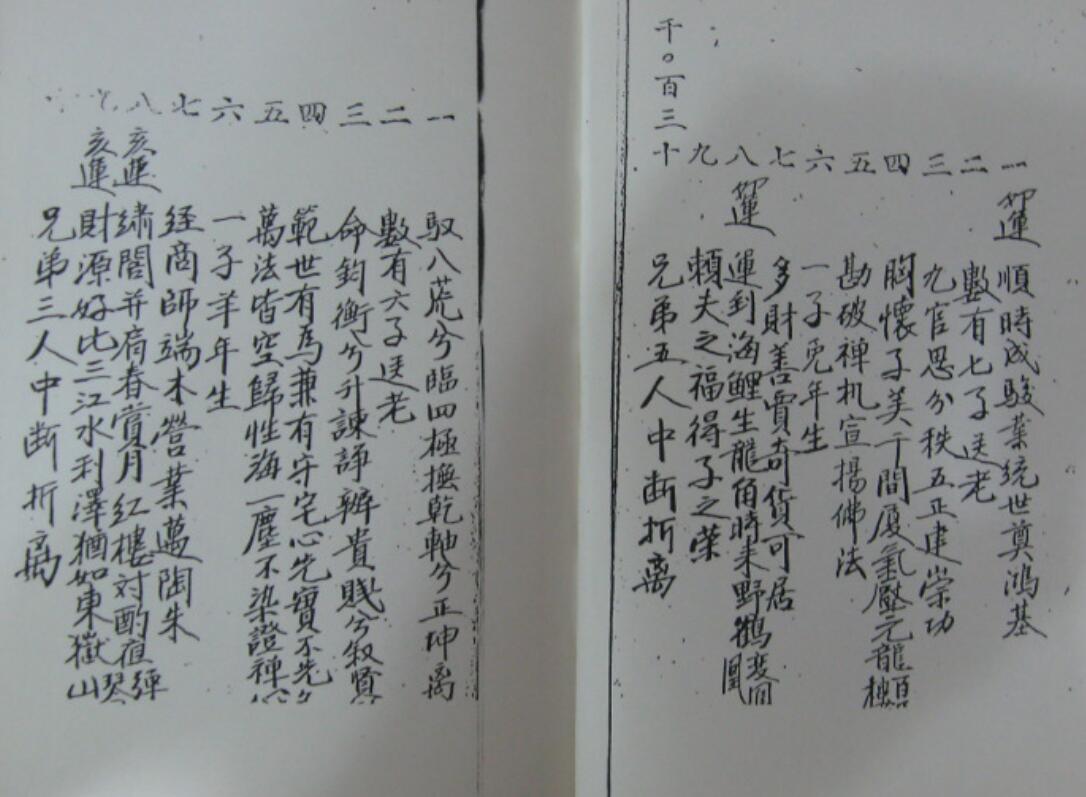 千〇百三十
一 卯運 順時成駿業統世奠鴻基
二 數有七子送老
三 九官思分秩五正建崇功
四 胸懷子美千間廈氣壓元龍百
五 勘破禅机宣揚佛法
六 一子兎年生
七 多財善賈奇貨可居
八 卯運 運到海鯉生龍角時来野鶴変同凰
九 賴夫之福得子之榮
十 兄弟五人中断折离
一 馭八荒兮臨四極撫乾軸兮正坤离
二 數有六子送老
三 命鈞衡兮升諫諍辨貴賤兮叙賢
四 範世有為兼有守宅心先實不先
五 萬法皆空歸性海一塵不染證禅
六 一子羊年生
七 经商師端木營業邁陶朱
八 亥運 绣閣并肩春賞月红樓対酌夜弹琴
亥運 財源好比三江水利澤猶如東嶽山
兄弟三人中断折离